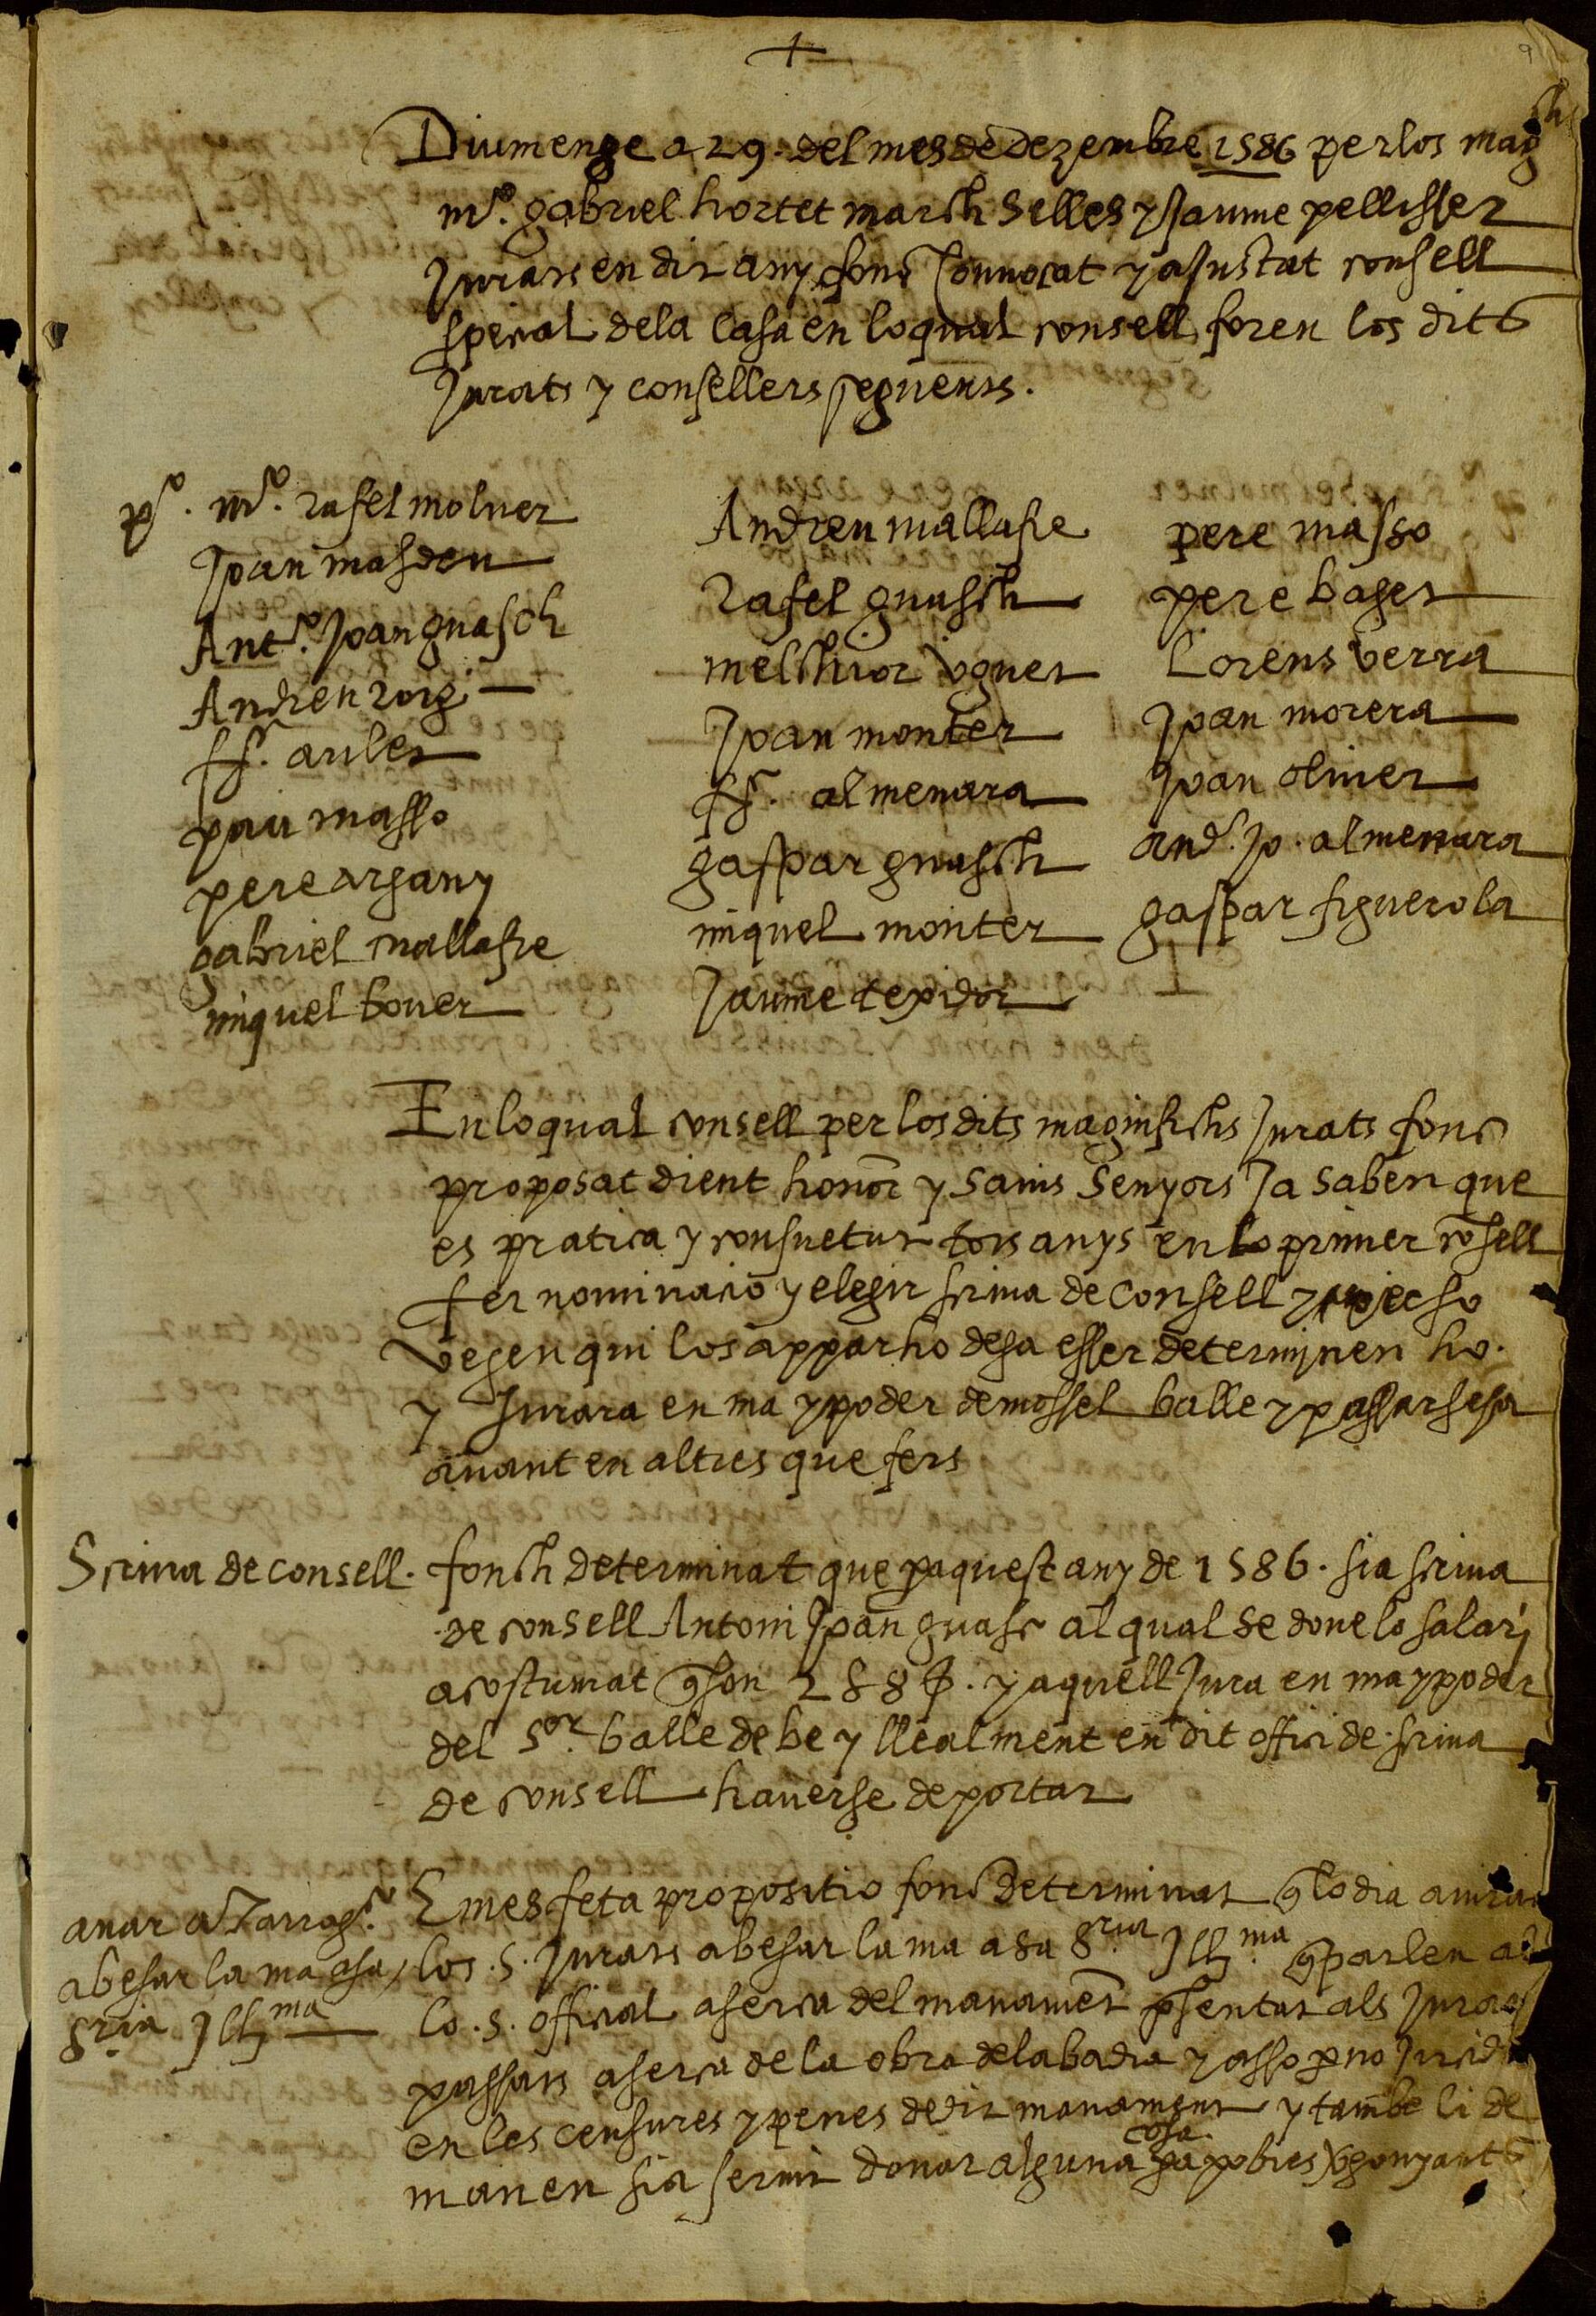 Diumenge a 29. del mes de dezembre 1586 per los magchs
mº. gabriel hortet march selles y Jaume pellisser
Jurats en dit any fonc convocat y ajustat consell
special de la casa en loqual consell foren los dits
Jurats y consellers seguents.
pº. mº. rafel molner
Joan masdeu
Antº. Joan guasch
Andreu roig
ff. aulet
pau masso
pere argany
gabriel mallafre
miquel bover
Andreu mallafre
Rafel guasch
melchior vguet
Joan monter
ff. almenara
gaspar guasch
miquel monter
Jaume texidor
pere masso
pere baget
Lorens verra
Joan morera
Joan oliver
and. Jo. almenara
gaspar figuerola
En loqual consell per los dits magnifichs Jurats fonc
proposat dient honor y savis senyors Ja saben que
es pratica y consuetut tots anys en lo primer cosell
fer nominacio y elegir scriva de consell y per so
vegen qui los appar ho deja esser determinen ho.
y Jurara en ma y poder de mossel balle y passarseja
avant en altres que fers
Scriva de consell. fonch determinat que paquest any de 1586. sia scriva
de consell Antoni Joan guasc al qual se done lo salari
acostumat q son 2 ₶ 8 ₰. y aquell Jura en ma y poder
del sor. balle de be y llealment en dit offici de scriva
de consell haverse de portar
anar a Tarragª.
a besar la ma a sa
sria Illma
E mes feta propositio fonc determinat q lo dia aniran
los .s. Jurats a besar la ma a sa sria Illma. q parlen ab
lo .s. official aserca del manamet psentat als Jurats
passats aserca de la obra de la badia y asso p no
en les censures y penes de dit manament y tambe li de
manen sia servit donar alguna cosa pa pobres vgonyants